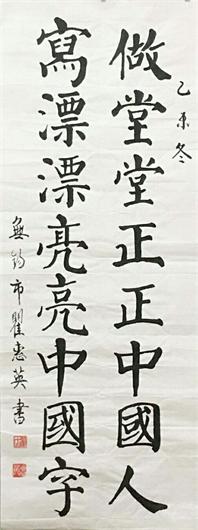 乙未冬
做堂堂正正中國人
寫漂漂亮亮中國字
無錫市瞿惠英書